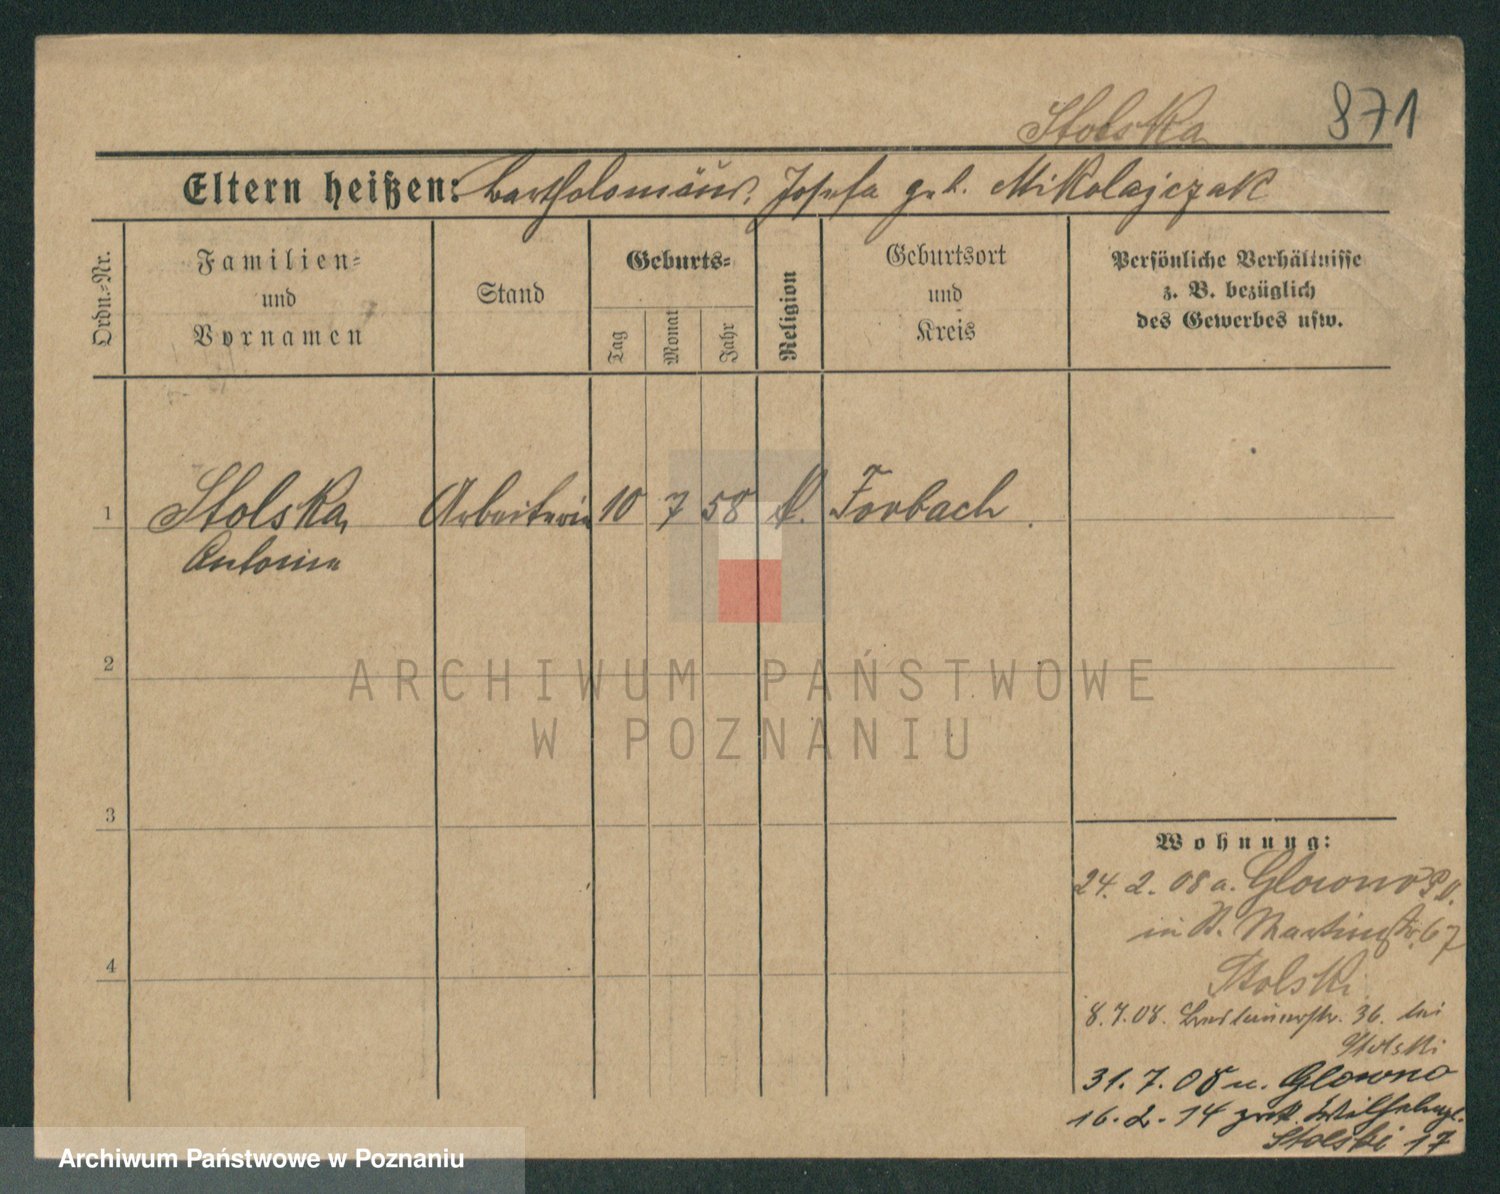 Stolska 871
Eltern heißen: Bartholomäus, Josefa geb. Mikolajczak
Ordn.-Nr.
Familien-
und
Vornamen
Stand
Geburts-
Tag
Monat
Jahr
Religion
Geburtsort
und
Kreis
Persönliche Verhältnisse
z. B. bezüglich
des Gewerbes usw.
1 Stolska Arbeiterin 10 7 58 k. Forbach
Antonie
2
3
4
Wohnung:
24. 2. 08 a. Glowno
in St. Martinstr. 67
Stolski
8. 7. 08. 36. bei
Stolski
31. 7. 08 n. Glowno
16. 2. 14 zrck.
Stolski 17
ARCHIWUM PAŃSTWOWE
W POZNANIU
Archiwum Państwowe w Poznaniu